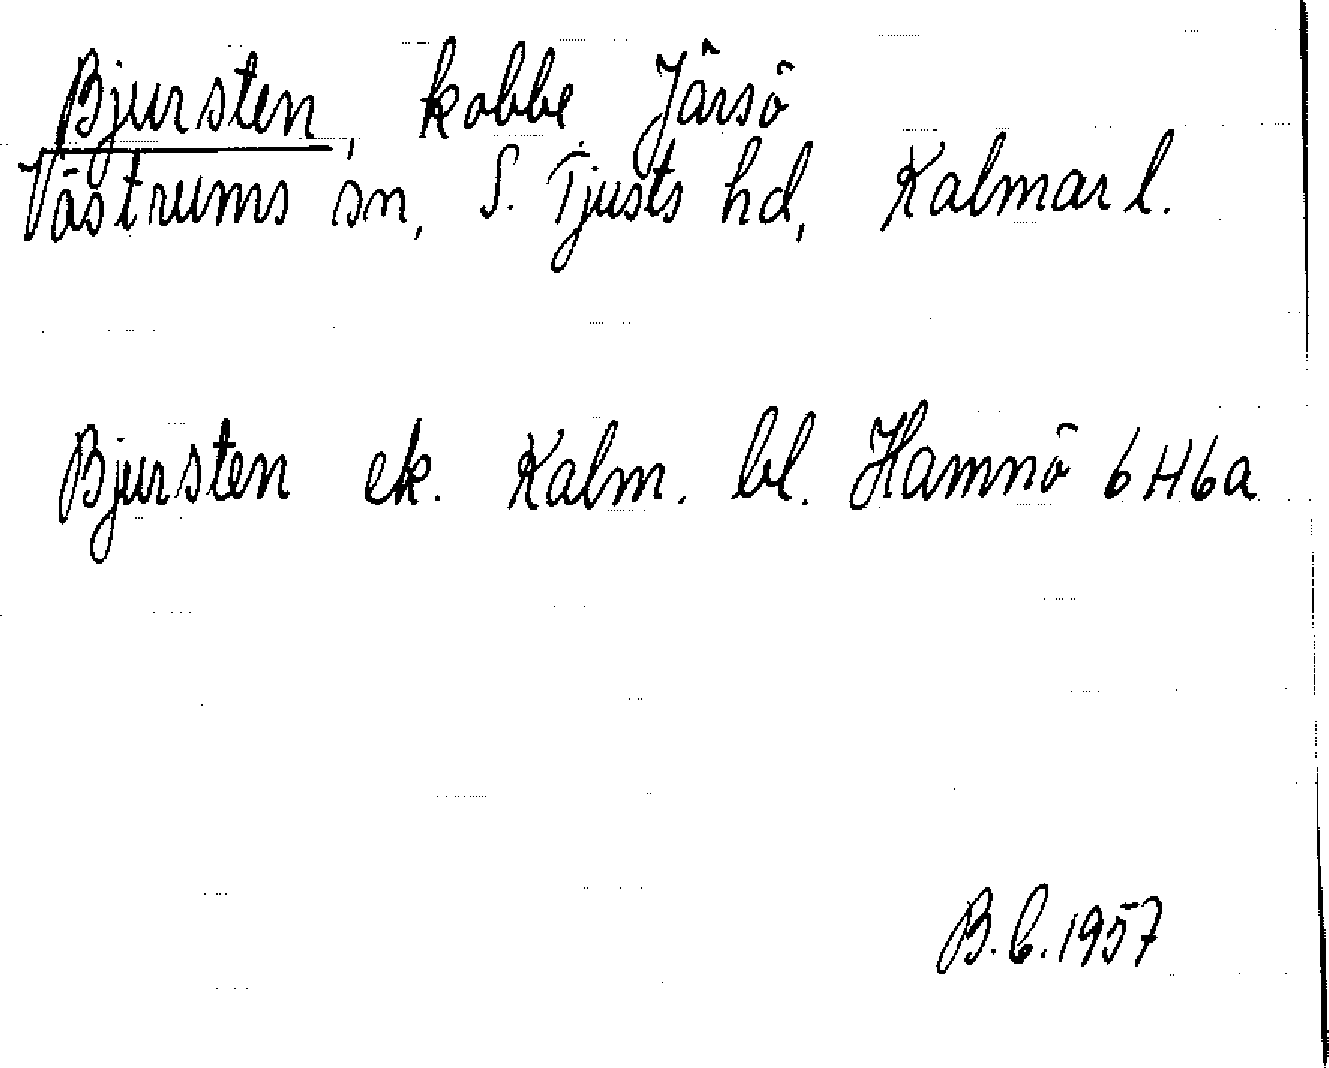 Bjursten, kobbe Jârsö
Västrums sn, S. Tjusts hd, Kalmar l.
Bjursten ek. Kalm. bl. Hamnö 6H6a
B.C. 1957